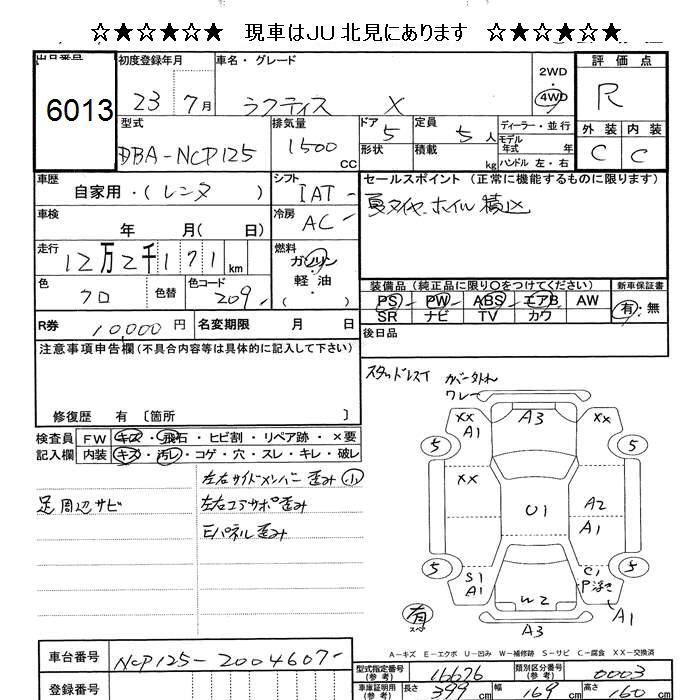 ☆★☆★☆★ 現車はJU北見にあります ☆★☆★☆★
6013
初度登録年月
23 7月
車名・グレード
ラクティス X
2WD
4WD
評価点
R
外装 内装
C C
型式
DBA-NCP125
排気量
1500 CC
ドア 5
形状
定員 5人
積載 kg
ディーラー・並行
モデル年式 年
ハンドル 左・右
車歴
自家用・(レンタ )
シフト
IAT-
セールスポイント (正常に機能するものに限ります)
夏タイヤ・ホイル積込
車検
年 月( 日)
冷房
AC-
走行
12万2千171 km
燃料
ガソリン
軽油
( )
色
クロ
色替
色コード
209-
装備品 (純正品に限り○をつけてください)
PS PW ABS エアB AW
SR ナビ TV カワ
新車保証書
有:無
R券 10,000円
名変期限 月 日
後日品
注意事項申告欄(不具合内容等は具体的に記入して下さい)
修復歴 有〔箇所 〕
スタッドレスイ
カバー外れ
ワレ
検査員
記入欄
FW キズ・飛石・ヒビ割・リペア跡・×要
内装 キズ・汚レ・コゲ・穴・スレ・キレ・破レ
足周辺サビ
左右サイドメンバー歪み 小
左右コアサポ歪み
Eパネル歪み
A3
XX
A1
XX
5
5
XX
U1
A2
A1
5
5
S1
A1
C1
P浮き
A1
W2
A3
有
スペア
A-キズ E-エクボ U-凹み W-補修跡 S-サビ C-腐食 XX-交換済
車台番号 NCP125-2004607-
登録番号
型式指定番号(参考) 16626
類別区分番号(参考) 0003
車庫証明用(参考) 長さ 399 cm 幅 169 cm 高さ 160 cm